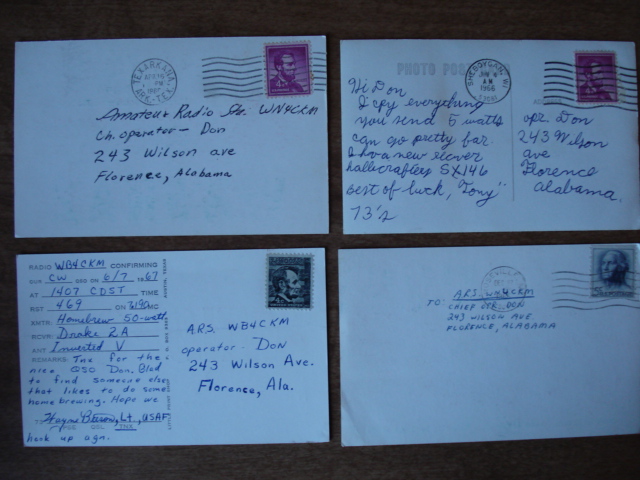 TEXARKANA
ARK.-TEX.
4¢
Amateur Radio Sta. WN4CKM
Ch. operator - Don
243 Wilson ave
Florence, Alabama
PHOTO POST
SHEBOYGAN, WI
AM
1966
Hi Don
I cpy everything
you send 5 watts
can go pretty far.
I hv a new recver
hallicrafters SX146
Best of luck, "Tony"
73's
opr. Don
243 Wilson
ave
Florence
Alabama.
RADIO WB4CKM CONFIRMING
OUR CW QSO ON 6/7 1967
AT 1407 CDST TIME
RST 469 ON MC
XMTR: Homebrew 50-watt
RCVR: Drake 2A
ANT Inverted V
REMARKS: Tnx for the
nice QSO Don. Glad
to find someone else
that likes to do some
home brewing. Hope we
Wayne Lt., USAF
QSL TNX
hook up agn.
A.R.S. WB4CKM
operator - Don
243 Wilson Ave.
Florence, Ala.
TO: A.R.S. WN4CKM
CHIEF OTR. DON
243 WILSON AVE.
FLORENCE, ALABAMA